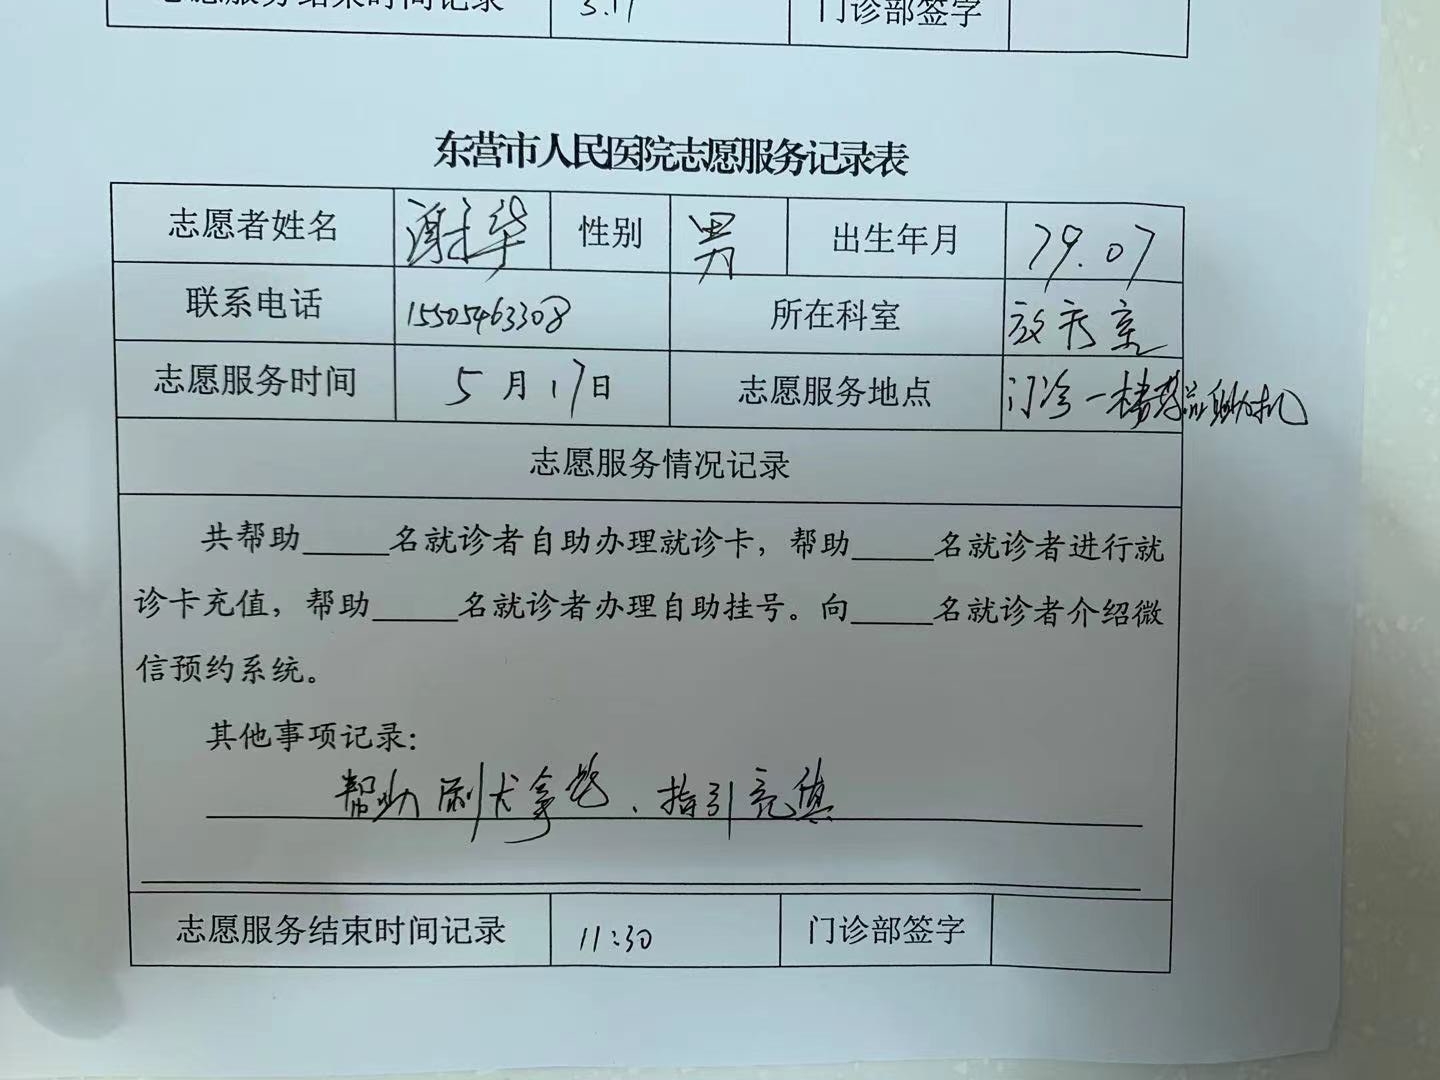 志愿服务结束时间记录 门诊部签字
东营市人民医院志愿服务记录表
志愿者姓名 性别 男 出生年月 79.07
联系电话 15505463308 所在科室
志愿服务时间 5月17日 志愿服务地点 门诊一楼
志愿服务情况记录
共帮助_____名就诊者自助办理就诊卡，帮助_____名就诊者进行就
诊卡充值，帮助_____名就诊者办理自助挂号。向_____名就诊者介绍微
信预约系统。
其他事项记录：
帮助刷卡拿药、指引充值
志愿服务结束时间记录 11:30 门诊部签字